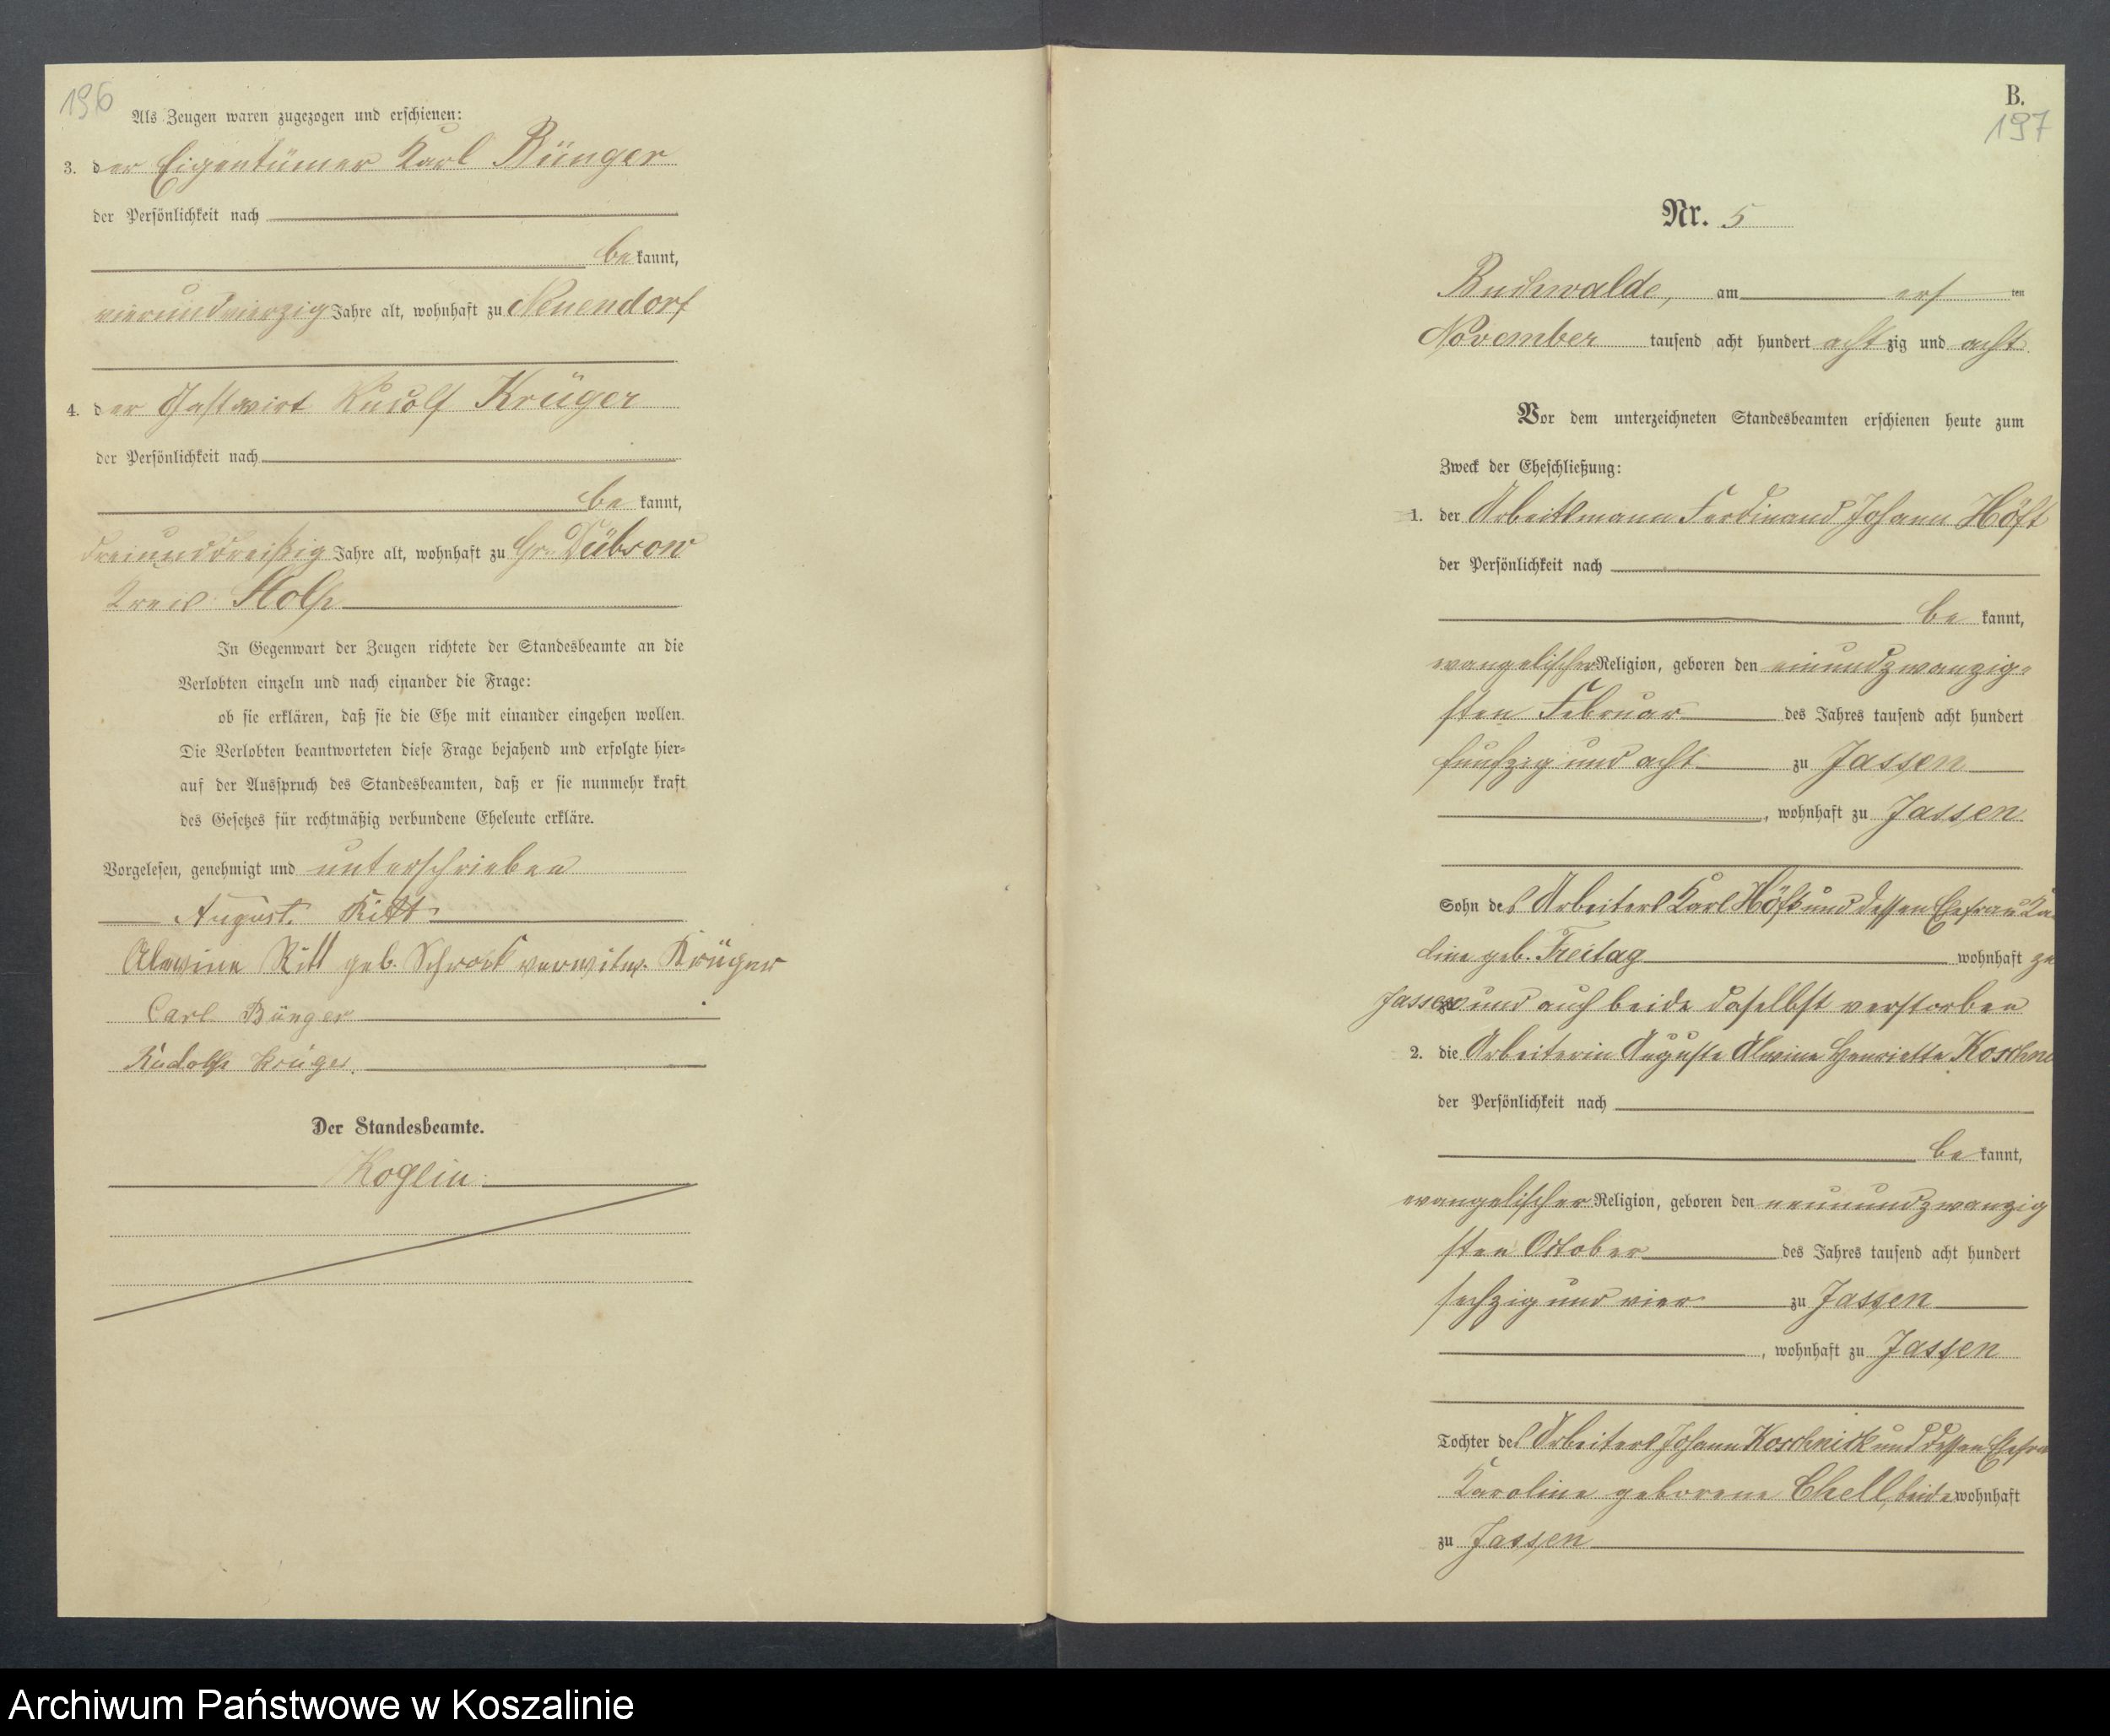 196
Als Zeugen waren zugezogen und erschienen:
3. der Eigentümer Karl Bünger
der Persönlichkeit nach
bekannt,
vierundvierzig Jahre alt, wohnhaft zu Neuendorf
4. der Gastwirt Rudolf Krüger
der Persönlichkeit nach
bekannt,
dreiunddreißig Jahre alt, wohnhaft zu Gr. Dübsow
Kreis Stolp
In Gegenwart der Zeugen richtete der Standesbeamte an die
Verlobten einzeln und nach einander die Frage:
ob sie erklären, daß sie die Ehe mit einander eingehen wollen.
Die Verlobten beantworteten diese Frage bejahend und erfolgte hier-
auf der Ausspruch des Standesbeamten, daß er sie nunmehr kraft
des Gesetzes für rechtmäßig verbundene Eheleute erkläre.
Vorgelesen, genehmigt und unterschrieben
August Ritt
Alwine Ritt geb. Schrock verwitw. Krüger
Carl Bünger
Rudolf Krüger.
Der Standesbeamte.
Koglin.
B.
197
Nr. 5
Buchwalde, am ersten
November tausend acht hundert achtzig und acht.
Vor dem unterzeichneten Standesbeamten erschienen heute zum
Zweck der Eheschließung:
1. der Arbeitsmann Ferdinand Johann Höft
der Persönlichkeit nach
bekannt,
evangelischer Religion, geboren den einundzwanzig-
sten Februar des Jahres tausend acht hundert
funfzig und acht zu Jassen
, wohnhaft zu Jassen
Sohn des Arbeiters Karl Höft und dessen Ehefrau Ka
line geb. Freitag wohnhaft zu
Jassen und auch beide daselbst verstorben
2. die Arbeiterin Auguste Alwine Henriette Koschni
der Persönlichkeit nach
bekannt,
evangelischer Religion, geboren den neunundzwanzig
sten October des Jahres tausend acht hundert
sechzig und vier zu Jassen
, wohnhaft zu Jassen
Tochter des Arbeiters Johann Koschnick und dessen Ehefra
Karoline geborene Chell, beide wohnhaft
zu Jassen
Archiwum Państwowe w Koszalinie